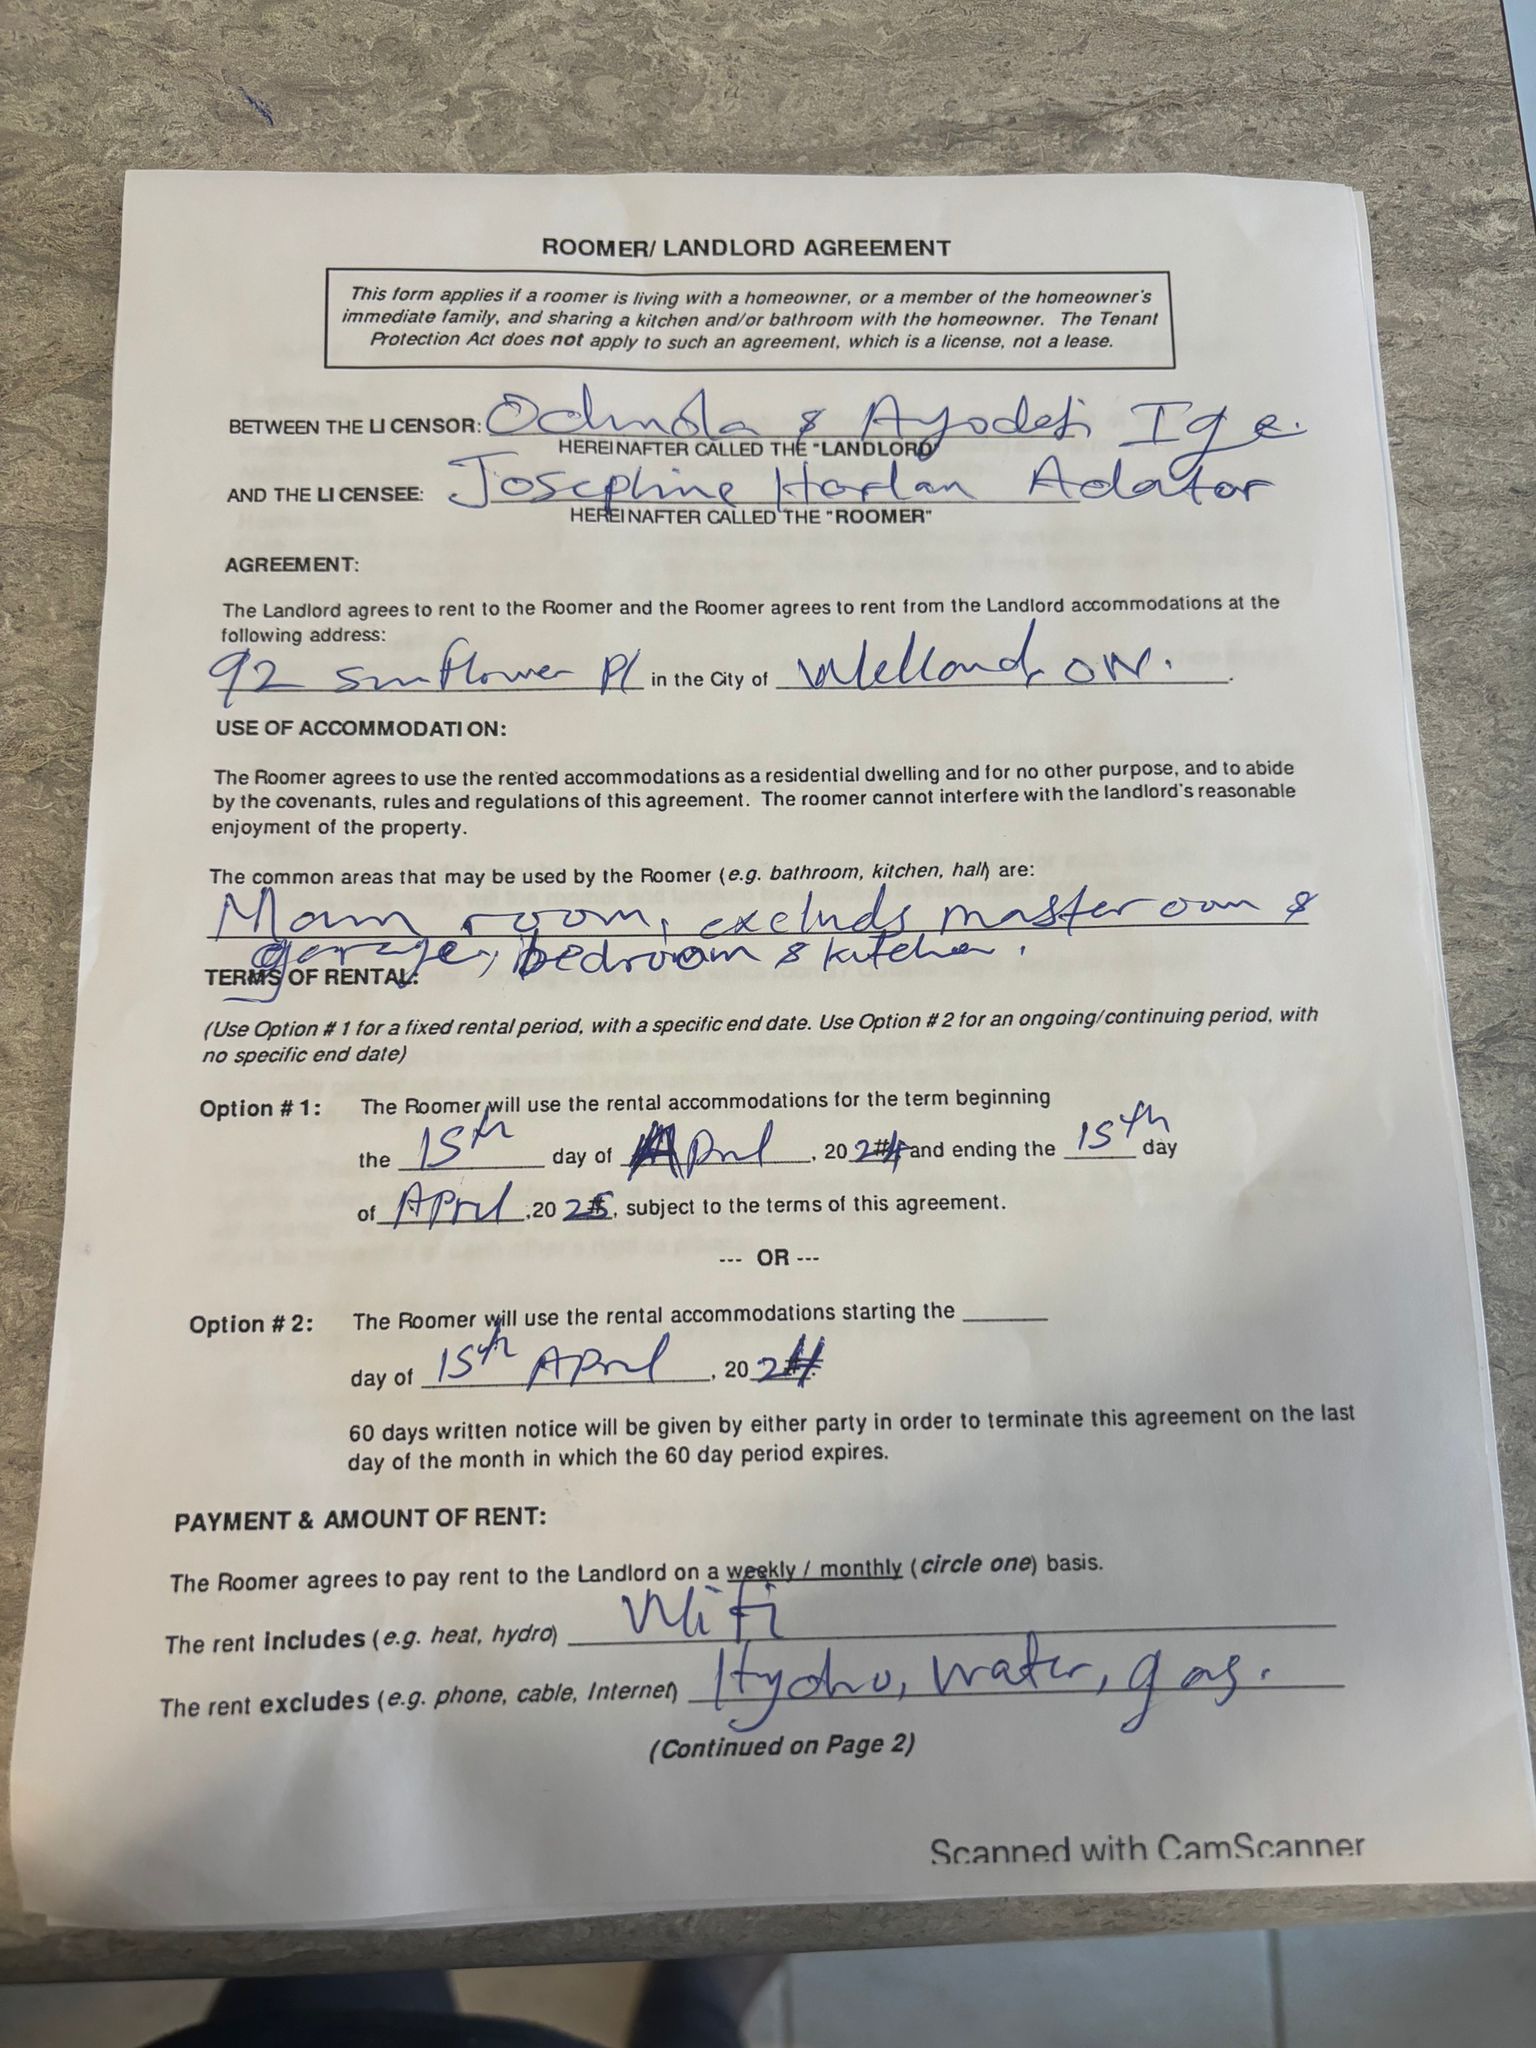 ROOMER/ LANDLORD AGREEMENT
This form applies if a roomer is living with a homeowner, or a member of the homeowner's
immediate family, and sharing a kitchen and/or bathroom with the homeowner. The Tenant
Protection Act does not apply to such an agreement, which is a license, not a lease.
BETWEEN THE LICENSOR: & Ayodeji Ige.
HEREINAFTER CALLED THE "LANDLORD"
AND THE LICENSEE: Josephine Harlan Adator
HEREINAFTER CALLED THE "ROOMER"
AGREEMENT:
The Landlord agrees to rent to the Roomer and the Roomer agrees to rent from the Landlord accommodations at the
following address:
92 Sunflower Pl in the City of Welland, ON.
USE OF ACCOMMODATION:
The Roomer agrees to use the rented accommodations as a residential dwelling and for no other purpose, and to abide
by the covenants, rules and regulations of this agreement. The roomer cannot interfere with the landlord's reasonable
enjoyment of the property.
The common areas that may be used by the Roomer (e.g. bathroom, kitchen, hall) are:
room, excluds masteroom &
garage, bedroom & kitchen.
TERMS OF RENTAL:
(Use Option # 1 for a fixed rental period, with a specific end date. Use Option # 2 for an ongoing/continuing period, with
no specific end date)
Option # 1: The Roomer will use the rental accommodations for the term beginning
the 15th day of April, 20 24 and ending the 15th day
of April, 20 25, subject to the terms of this agreement.
--- OR ---
Option # 2: The Roomer will use the rental accommodations starting the
day of 15th April, 20 24
60 days written notice will be given by either party in order to terminate this agreement on the last
day of the month in which the 60 day period expires.
PAYMENT & AMOUNT OF RENT:
The Roomer agrees to pay rent to the Landlord on a weekly / monthly (circle one) basis.
The rent includes (e.g. heat, hydro) Wifi
The rent excludes (e.g. phone, cable, Internet) Hydro, water, gas.
(Continued on Page 2)
Scanned with CamScanner